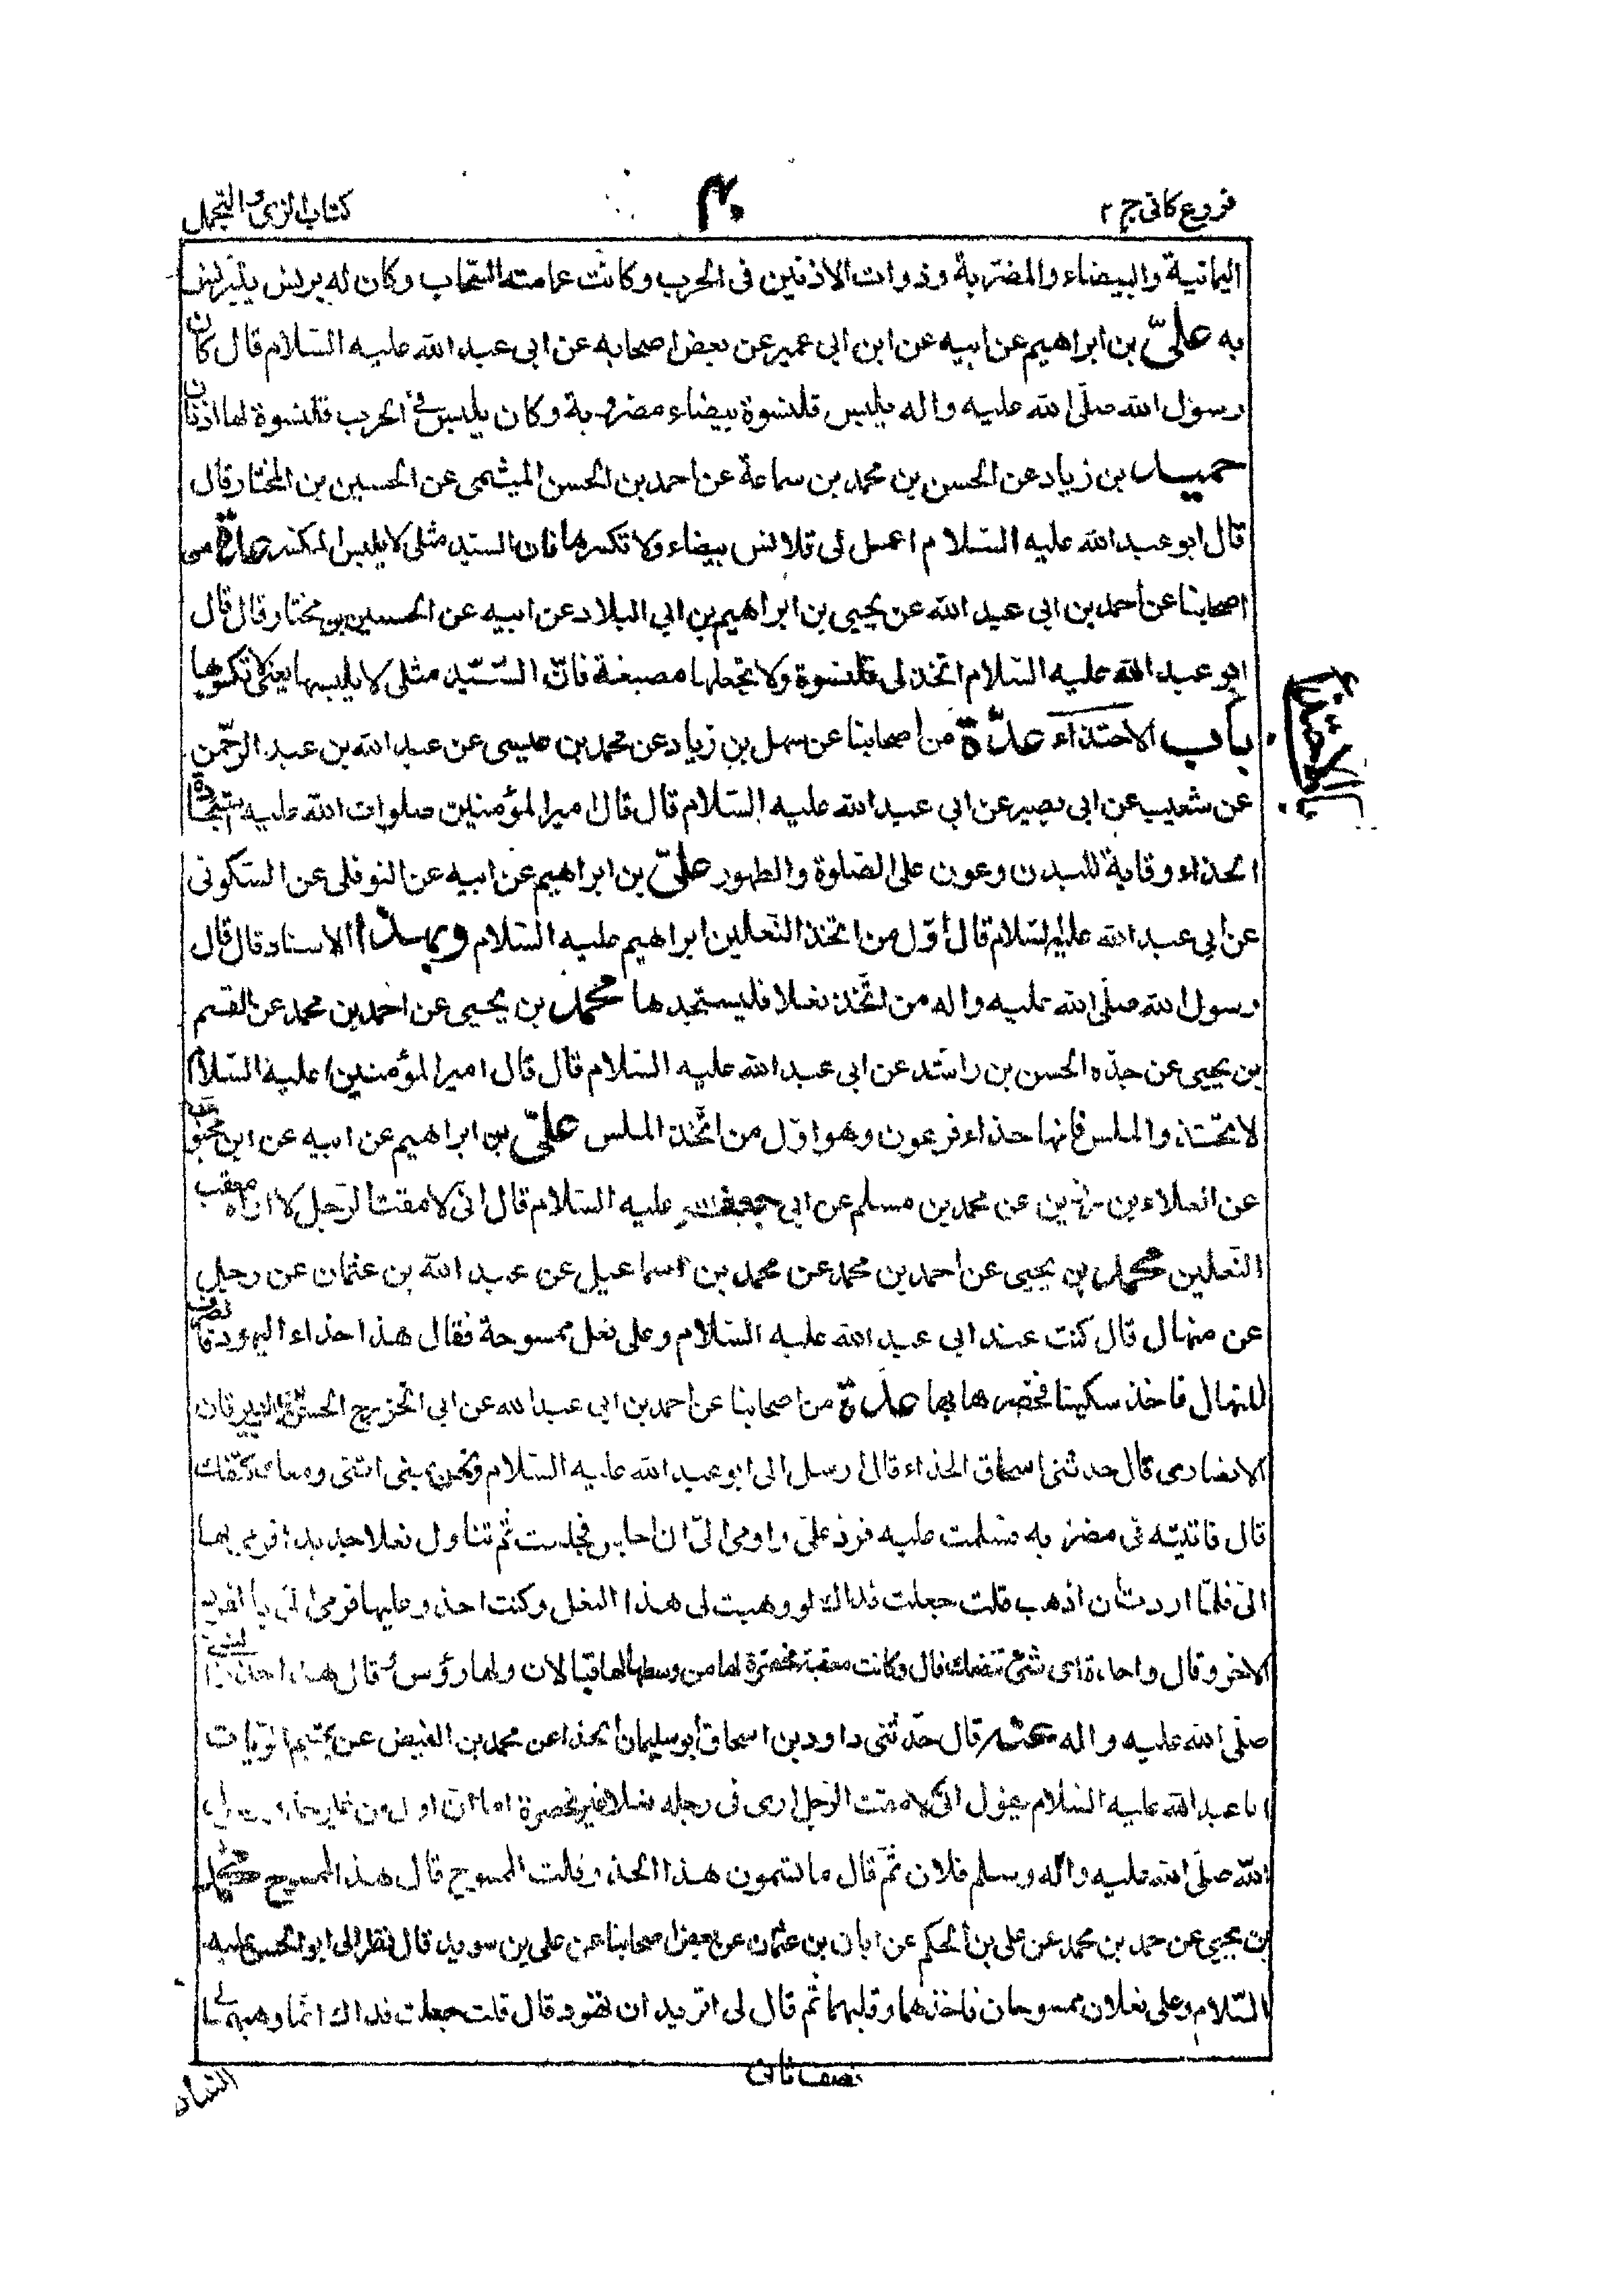 فروع كافى ج ٢
٢٠
كتاب الزى والتجمل
اليمانية والبيضاء والمضربة وذوات الاذنين فى الحرب وكانت عمامته السحاب وكان له برنس يتبرنس
به علىّ بن ابراهيم عن ابيه عن ابن ابى عمير عن بعض اصحابه عن ابى عبد الله عليه السّلام قال كان
رسول الله صلّى الله عليه واله يلبس قلنسوة بيضاء مضروبة وكان يلبس فى الحرب قلنسوة لها اذنان
حميد بن زياد عن الحسن بن محمد بن سماعة عن احمد بن الحسن الميثمى عن الحسين بن المختار قال
قال ابو عبد الله عليه السّلام اعمل لى قلانس بيضاء ولا تكسرها فان السيّد مثلى لا يلبس المكسر عدّة من
اصحابنا عن احمد بن ابى عبد الله عن يحيى بن ابراهيم بن ابى البلاد عن ابيه عن الحسين بن مختار قال قال
ابو عبد الله عليه السّلام اتخذ لى قلنسوة ولا تجعلها مصبغة فانّ السّيّد مثلى لا يلبسها يعنى لا تكسرها
باب الاحتذاء عدّة من اصحابنا عن سهل بن زياد عن محمد بن عيسى عن عبد الله بن عبد الرّحمن
عن شعيب عن ابى بصير عن ابى عبد الله عليه السّلام قال قال امير المؤمنين صلوات الله عليه استجادة
الحذاء وقاية للبدن وعون على الصّلوة والطهور علىّ بن ابراهيم عن ابيه عن النوفلى عن السّكونى
عن ابى عبد الله عليه السّلام قال اوّل من اتخذ النّعلين ابراهيم عليه السّلام وبهذا الاسناد قال قال
رسول الله صلّى الله عليه واله من اتّخذ نعلا فليستجدها محمد بن يحيى عن احمد بن محمد عن القسم
بن يحيى عن جدّه الحسن بن راشد عن ابى عبد الله عليه السّلام قال قال امير المؤمنين عليه السّلام
لا تحتذوا الملس فانها حذاء فرعون وهو اوّل من اتّخذ الملس علىّ بن ابراهيم عن ابيه عن ابن محبوب
عن العلاء بن رزين عن محمد بن مسلم عن ابى جعفر عليه السّلام قال انّى لامقت الرّجل لا اراه معقب
النّعلين محمد بن يحيى عن احمد بن محمد عن محمد بن اسماعيل عن عبد الله بن عثمان عن رجل
عن منهال قال كنت عند ابى عبد الله عليه السّلام وعلى نعل ممسوحة فقال هذا حذاء اليهود فانصرف
المنهال فاخذ سكينا فخصرها بها عدّة من اصحابنا عن احمد بن ابى عبد الله عن ابى الخزرج الحسن بن الزبرقان
الانصارى قال حدثنى اسحاق الحذاء قال ارسل الى ابو عبد الله عليه السّلام ونحن بمنى ائتنى ومعك كنفك
قال فاتيته فى مضربه فسلمت عليه فردّ علىّ واومى الىّ ان اجلس فجلست ثمّ تناول نعلا جديدا فرمى بها
الىّ فلمّا اردت ان اذهب قلت جعلت فداك لو وهبت لى هذا النعل وكنت احذو عليها فرمى الىّ بالفرد
الاخر وقال واحدة اى شئ تنفعك قال وكانت معقبة مخصرة لها من وسطها لها قبالان ولها رؤس فقال هذا حذو النبى
صلّى الله عليه واله عنه قال حدّثنى داود بن اسحاق ابو سليمان الحذا عن محمد بن الفيض عن تيم الرّباب
ابا عبد الله عليه السّلام يقول انّى لامقت الرّجل ارى فى رجله نعلا غير مخصرة اما انّ اول من غير حذو رسول
الله صلّى الله عليه واله وسلم فلان ثمّ قال ما تسمون هذا الحذو قلت الممسوح قال هذا الممسوح محمد
بن يحيى عن حمد بن محمد عن على بن الحكم عن ابان بن عثمان عن بعض اصحابنا عن على بن سويد قال نظر الى ابو الحسن عليه
السّلام وعلى نعلان ممسوحان فاخذهما وقلبهما ثم قال لى اتريد ان تهود قال قلت جعلت فداك انّما وهبهما لى
نصف ثانى